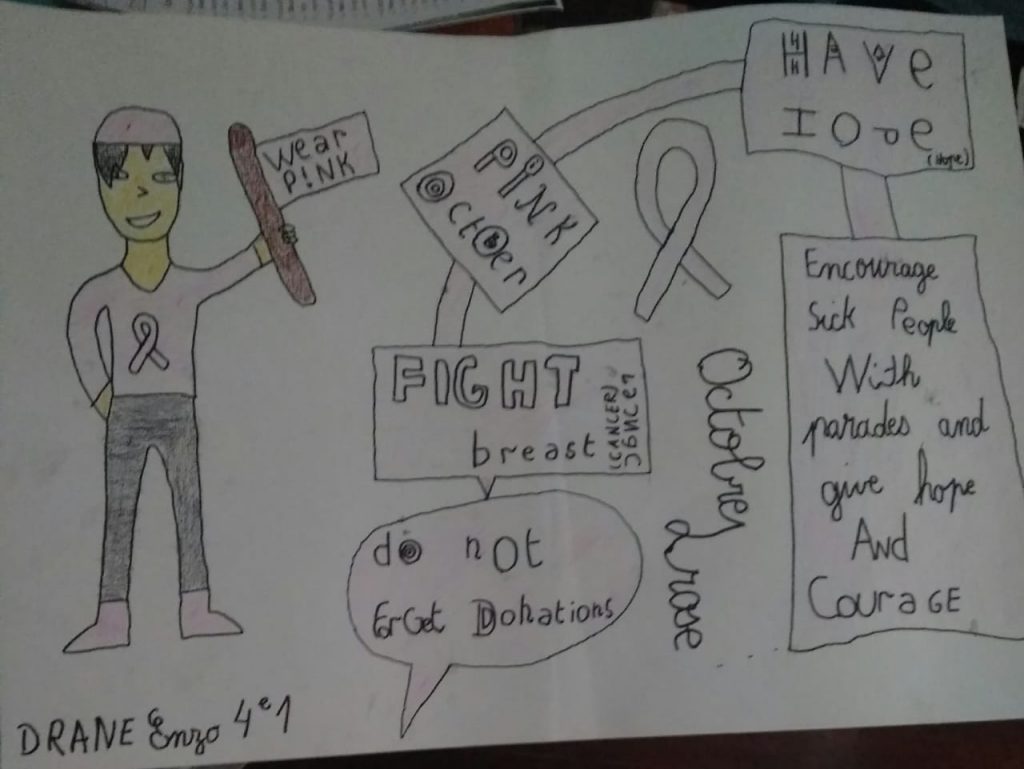 Wear
P!NK
PINK
OctOber
HAVe
IOPe
(Hope)
Encourage
Sick People
With
parades and
give hope
And
CouraGE
FIGHT
breast
(CANCER)
do not
forGet Donations
Octobre
rose
DRANE Enzo 4e1